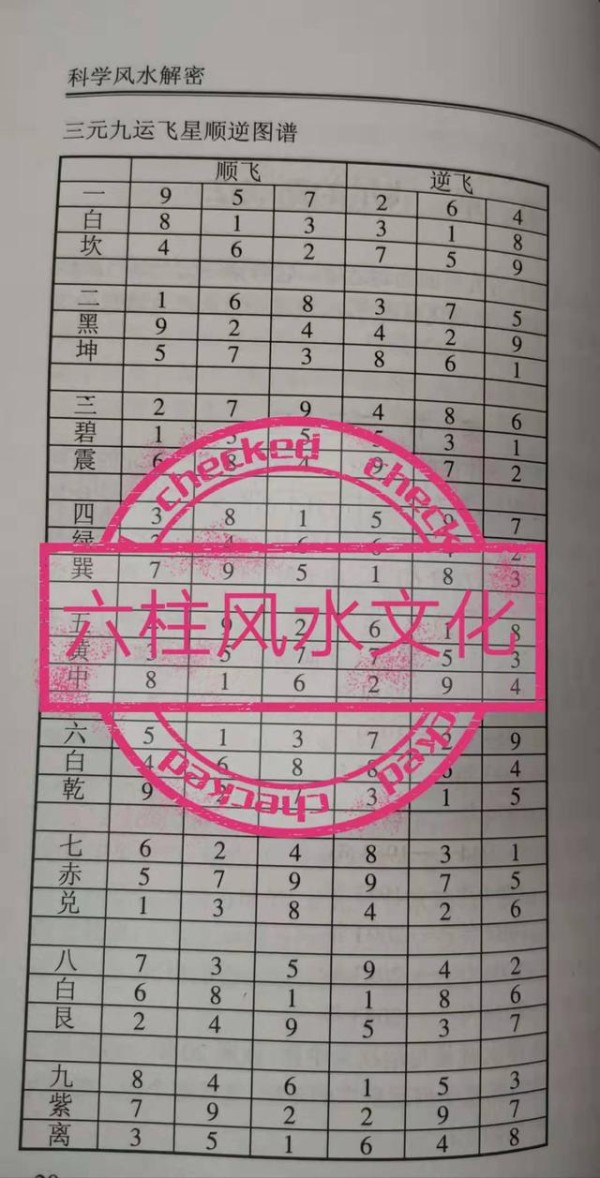 科学风水解密
三元九运飞星顺逆图谱
顺飞 逆飞
一 9 5 7 2 6 4
白 8 1 3 3 1 8
坎 4 6 2 7 5 9
二 1 6 8 3 7 5
黑 9 2 4 4 2 9
坤 5 7 3 8 6 1
三 2 7 9 4 8 6
碧 1 3 5 5 3 1
震 6 8 4 9 7 2
checked
checked
四 3 8 1 5 9 7
绿 4 6 6 4 2
巽 7 9 5 1 8 3
六柱风水文化
五 9 2 6 1 8
黄 3 5 7 7 5 3
中 8 1 6 2 9 4
六 5 1 3 7 2 9
白 4 6 8 8 6 4
乾 9 2 7 3 1 5
checked
checked
checked
七 6 2 4 8 3 1
赤 5 7 9 9 7 5
兑 1 3 8 4 2 6
八 7 3 5 9 4 2
白 6 8 1 1 8 6
艮 2 4 9 5 3 7
九 8 4 6 1 5 3
紫 7 9 2 2 9 7
离 3 5 1 6 4 8